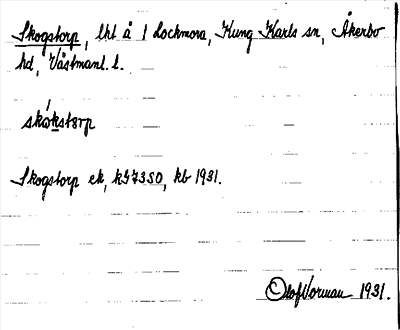 Skogstorp, lht å 1 Lockmora, Kung Karls sn, Åkerbo
hd, Västmanl. l.
skókstorp
Skogstorp ek, k57350, kb 1931.
Olof Norman 1931.